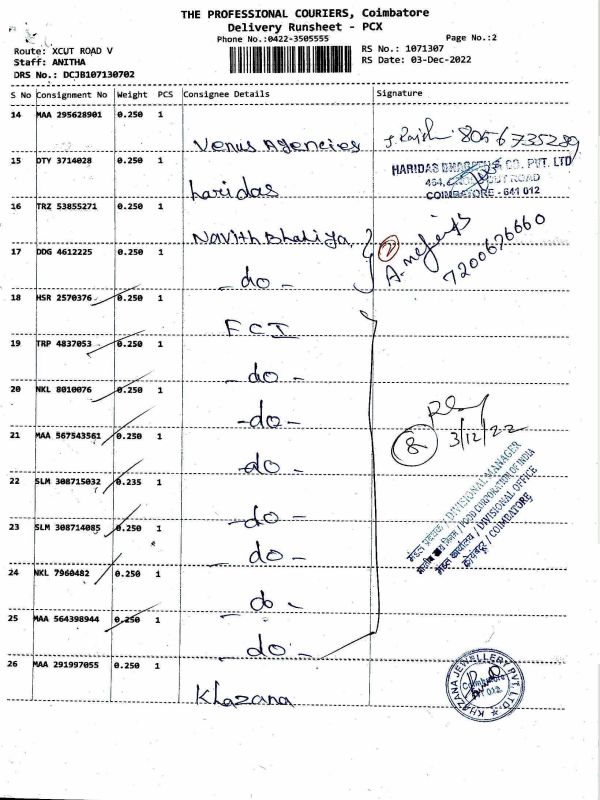 THE PROFESSIONAL COURIERS, Coimbatore
Delivery Runsheet - PCX
Phone No.:0422-3505555
Page No.:2
Route: XCUT ROAD V
Staff: ANITHA
DRS No.: DCJB107130702
RS No.: 1071307
RS Date: 03-Dec-2022
S No Consignment No Weight PCS Consignee Details Signature
14 MAA 295628901 0.250 1
Venus Agencies 8056735289
15 DTY 3714028 0.250 1
haridas
HARIDAS & CO. PVT. LTD
ROAD
COIMBATORE - 641 012
16 TRZ 53855271 0.250 1
Navith Bhaliya
17 DDG 4612225 0.250 1
- do -
2
7200626660
18 HSR 2570376 0.250 1
FCI
19 TRP 4837053 0.250 1
- do -
20 NKL 8010076 0.250 1
- do -
21 MAA 567543561 0.250 1
- do -
8
3/12/22
22 SLM 308715032 0.235 1
- do -
23 SLM 308714085 0.250 1
- do -
मंडल प्रबंधक / DIVISIONAL MANAGER
भारतीय खाद्य निगम / FOOD CORPORATION OF INDIA
मंडल कार्यालय / DIVISIONAL OFFICE
कोयंबटूर / COIMBATORE
24 NKL 7960482 0.250 1
- do -
25 MAA 564398944 0.250 1
- do -
26 MAA 291997055 0.250 1
Khazana
KHAZANA JEWELLERY PVT. LTD.